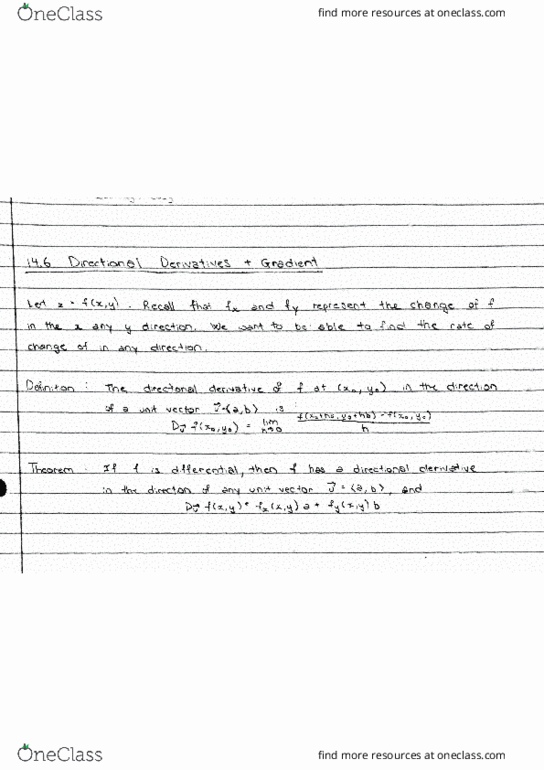 OneClass
find more resources at oneclass.com
14.6 Directional Derivatives + Gradient
Let z = f(x,y). Recall that fx and fy represent the change of f
in the x any y direction. We want to be able to find the rate of
change of in any direction.
Definition : The directional derivative of f at (x₀, y₀) in the direction
of a unit vector = ⟨a,b⟩ is
f(x₀, y₀) = lim h→0 f(x₀+ha, y₀+hb) - f(x₀, y₀) / h
Theorem : If f is differential, then f has a directional derivative
in the direction of any unit vector = ⟨a, b⟩, and
f(x,y) = fx(x,y) a + fy(x,y) b
OneClass
find more resources at oneclass.com